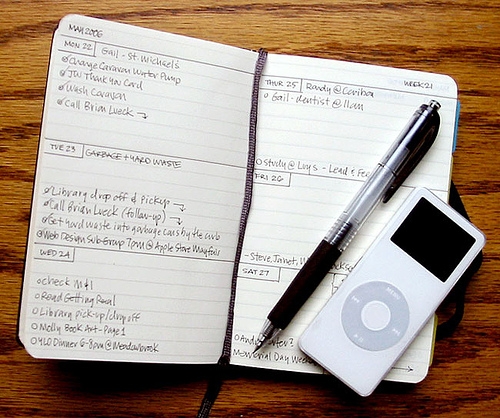 MAY 2006
MON 22 Gail - St. Michael's
Change Caravan Water Pump
JW Thank You Card
Wash Caravan
Call Brian Lueck
TUE 23 GARBAGE + HARD WASTE
Library drop off & pickup
Call Brian Lueck (follow-up)
Get hard waste into garbage cans by the curb
Web Design SubGroup 7pm @ Apple Store Mayfair
WED 24
check M+I
Read Getting Real
Library pick-up/dropoff
Molly Book Art - Page 1
YLO Dinner 6-8pm @ Meadowbrook
THUR 25 Randy @ Caribou WEEK 21
Gail - dentist @ 11am
study @ Luy's - Lead &
FRI 26
- Steve, Janet,
SAT 27
Memorial Day Week
MENU